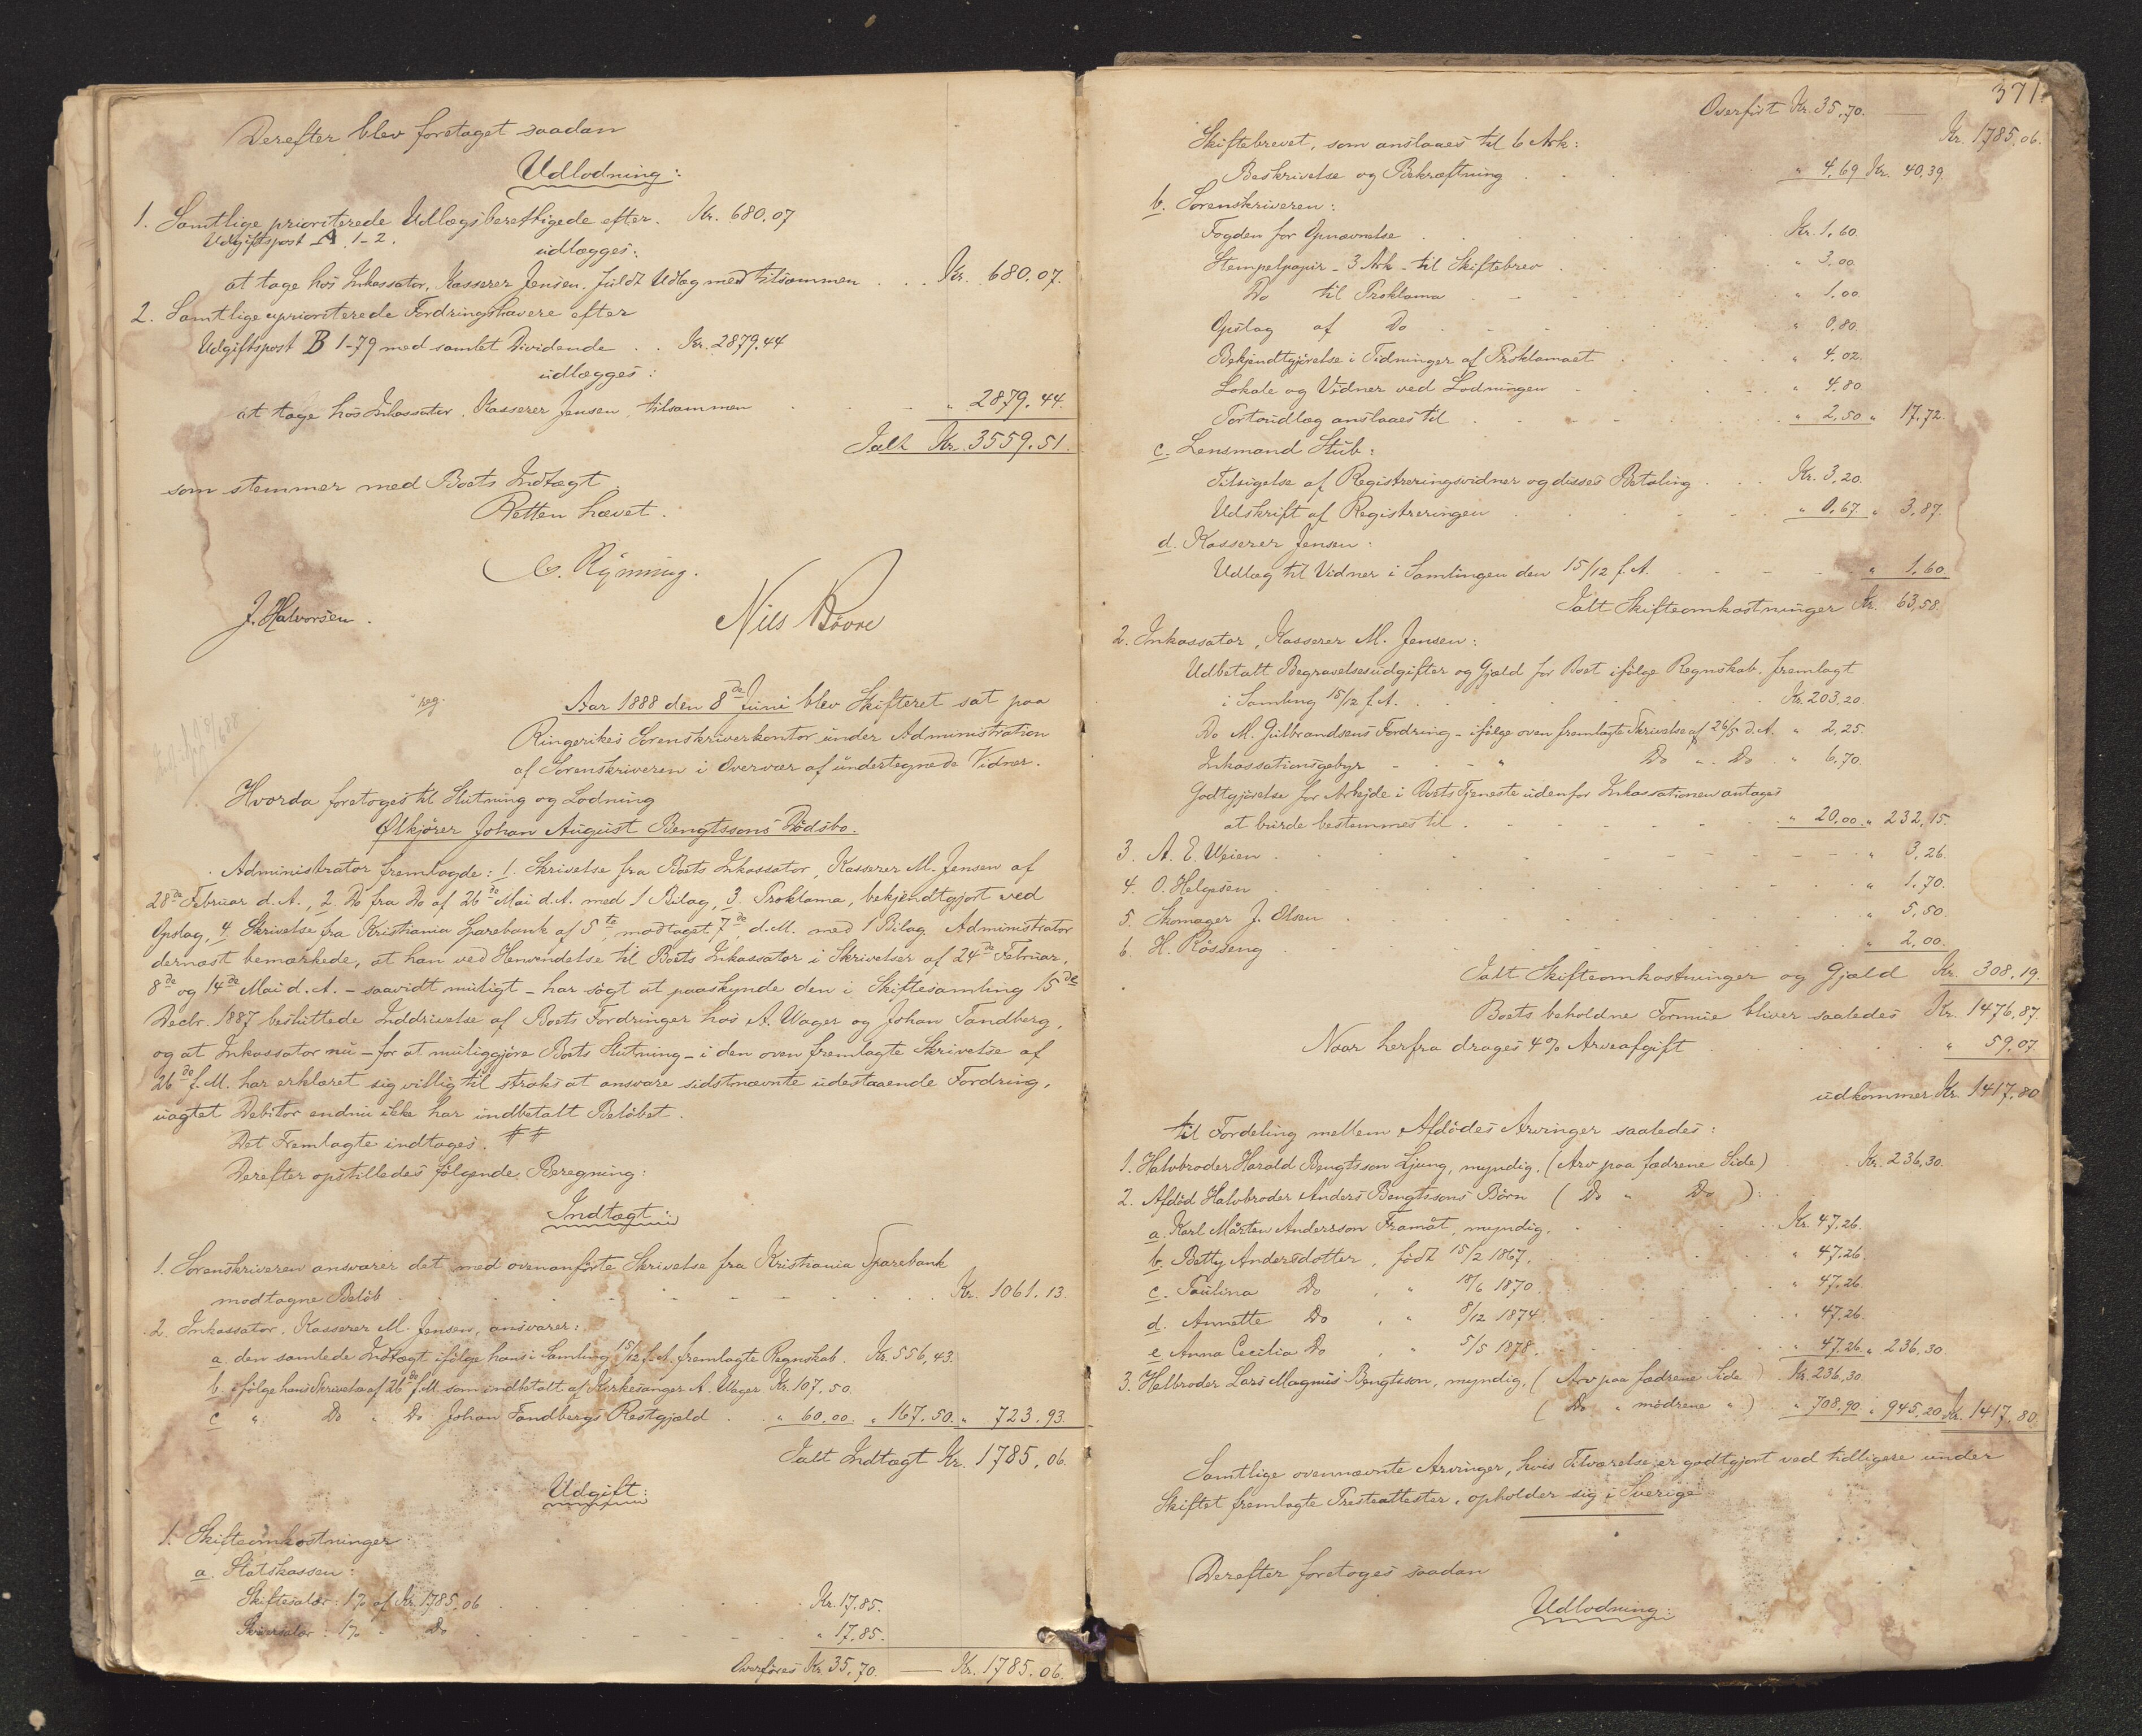 Derefter blev foretaget saadan
Udlodning:
1. Samtlige prioriterede Udlægsberettigede efter. Kr. 680.07
Udgiftspost A 1-2.
udlægges:
at tage hos Inkassator, Kasserer Jensen, fuldt Udlæg med tilsammen . . . Kr. 680.07.
2. Samtlige uprioriterede Fordringshavere efter
Udgiftspost B 1-79 med samlet Dividende . . Kr. 2879.44
udlægges:
at tage hos Inkassator, Kasserer Jensen, tilsammen . . . " 2879.44.
Ialt Kr. 3559.51.
som stemmer med Boets Indtægt.
Retten hævet.
C. Rynning.
J. Halvorsen.
Nils Bövre
Aar 1888 den 8de Juni blev Skifteret sat paa
Ringerikes Sorenskriverkontor under Administration
af Sorenskriveren i Overvær af undertegnede Vidner.
Hvorda foretoges til Slutning og Lodning
Ølkjører Johan August Bengtssons Dödsbo.
Administrator fremlagde: 1. Skrivelse fra Boets Inkassator, Kasserer M. Jensen af
28de Februar d. A., 2. Do fra Do af 26de Mai d. A. med 1 Bilag, 3. Proklama, bekjendtgjort ved
Opslag, 4. Skrivelse fra Kristiania Sparebank af 5te, modtaget 7de d. M. med 1 Bilag. Administrator
dernæst bemærkede, at han ved Henvendelse til Boets Inkassator i Skrivelser af 24de Februar,
8de og 14de Mai d. A. - saavidt muligt - har sögt at paaskynde den i Skiftesamling 15de
Decbr. 1887 besluttede Inddrivelse af Boets Fordringer hos A. Wager og Johan Tandberg,
og at Inkassator nu - for at muliggjöre Boets Slutning - i den oven fremlagte Skrivelse af
26de f. M. har erklæret sig villig til straks at ansvare sidstnævnte udestaaende Fordring,
uagtet Debitor endnu ikke har indbetalt Belöbet.
Det Fremlagte indtages. ##
Derefter opstilledes fölgende Beregning:
Indtægt:
1. Sorenskriveren ansvarer det med ovenanförte Skrivelse fra Kristiania Sparebank
modtagne Belöb . . . Kr. 1061.13.
2. Inkassator, Kasserer M. Jensen, ansvarer:
a. den samlede Indtægt ifölge hans i Samling 15/12 f. A. fremlagte Regnskab. Kr. 556,43.
b. ifölge hans Skrivelse af 26de f. M. som indbetalt af Kirkesanger A. Wager Kr. 107,50.
c. " Do " Do Johan Tandbergs Restgjæld . " 60,00. " 167.50. " 723.93.
Ialt Indtægt Kr. 1785,06.
Udgift:
1. Skifteomkostninger:
a. Statskassen:
Skiftesalær: 1% af Kr. 1785,06 . . . Kr. 17.85.
Skriversalær: 1% " Do . . . " 17,85.
Overföres Kr. 35,70. — Kr. 1785.06.
371.
Overfört Kr. 35,70. — Kr. 1785.06.
Skiftebrevet, som anslaaes til 6 Ark:
Beskrivelse og Bekræftning . . . " 4.69 Kr. 40,39.
b. Sorenskriveren:
Fogden for Opnævnelse . . . Kr. 1,60.
Stempelpapir - 3 Ark - til Skiftebrev . . . " 3,00.
Do til Proklama . . . " 1.00.
Opslag af Do . . . " 0.80.
Bekjendtgjörelse i Tidninger af Proklamaet . . . " 4.02.
Lokale og Vidner ved Lodningen . . . " 4.80
Portoudlæg anslaaes til . . . " 2,50 " 17,72.
c. Lensmand Stub:
Tilsigelse af Registreringsvidner og disses Betaling . . . Kr. 3,20.
Udskrift af Registreringen . . . " 0,67. " 3,87.
d. Kasserer Jensen:
Udlæg til Vidner i Samlingen den 15/12 f. A. . . . " 1,60
Ialt Skifteomkostninger Kr. 63,58.
2. Inkassator, Kasserer M. Jensen:
Udbetalt Begravelsesudgifter og Gjæld for Boet ifölge Regnskab, fremlagt
i Samling 15/12 f. A. . . . Kr. 203,20.
Do M. Gulbrandsens Fordring - ifölge oven fremlagte Skrivelse af 26/5 d. A. " 2,25.
Inkassationsgebyr - - " Do " Do " 6,70.
Godtgjörelse for Arbejde i Boets Tjeneste udenfor Inkassationen antages
at burde bestemmes til . . . " 20,00. " 232,15.
3. A. E. Weien . . . " 3,26.
4. O. Helgesen . . . " 1,70.
5. Skomager J. Olsen . . . " 5,50.
6. H. Rösseng . . . " 2,00.
Ialt Skifteomkostninger og Gjæld Kr. 308,19.
Boets beholdne Formue bliver saaledes Kr. 1476,87.
Naar herfra drages 4% Arveafgift . . . " 59,07
udkommer Kr. 1417,80
til Fordeling mellem Afdödes Arvinger saaledes:
1. Halvbroder Harald Bengtsson Ljung, myndig. (Arv paa fædrene Side) . Kr. 236,30.
2. Afdöd Halvbroder Anders Bengtssons Börn (Do " Do ):
a. Karl Mårten Andersson Framåt, myndig. . . . Kr. 47,26.
b. Betty Andersdotter, född 15/2 1867. . . . " 47,26.
c. Paulina Do , " 18/6 1870. . . . " 47,26
d. Annette Do , " 8/12 1874. . . . " 47,26.
e. Anna Cecilia Do , " 5/5 1878. . . . " 47,26 " 236,30
3. Helbroder Lars Magnus Bengtsson, myndig, (Arv paa fædrene Side) Kr. 236,30
(Do " mödrene ") " 708,90 " 945,20 Kr. 1417,80.
Samtlige ovennævnte Arvinger, hvis Tilværelse er godtgjort ved tidligere under
Skiftet fremlagte Presteattester, opholder sig i Sverige
Derefter foretoges saadan
Udlodning: